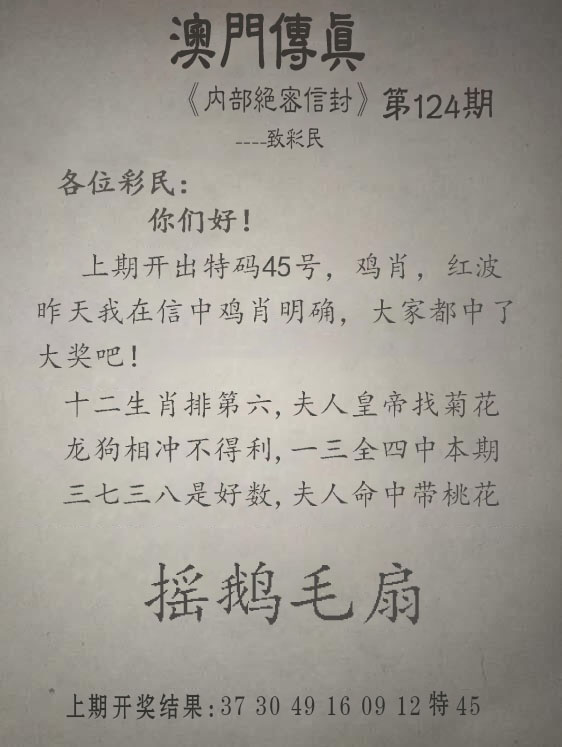 澳門傳真
《内部絕密信封》第124期
----致彩民
各位彩民:
你们好!
上期开出特码45号，鸡肖，红波
昨天我在信中鸡肖明确，大家都中了
大奖吧!
十二生肖排第六,夫人皇帝找菊花
龙狗相冲不得利,一三全四中本期
三七三八是好数,夫人命中带桃花
摇鹅毛扇
上期开奖结果:37 30 49 16 09 12 特 45